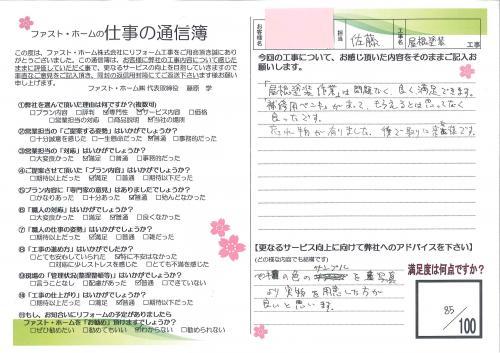 ファスト・ホームの 仕事の通信簿
この度は、ファスト・ホーム株式会社にリフォーム工事をご用命頂き誠にあり
がとうございました。この通信簿は、お客様に弊社の工事内容について感じた
ままに評価していただく事で、更なるサービスの向上を目指していきますので
率直なご意見をご記入頂き、同封の返信用封筒にてご返送下さいます様お願い
申し上げます。
ファースト・ホーム㈱ 代表取締役 藤原 学
①弊社を選んで頂いた理由は何ですか？(複数可)
□プラン内容 □評判 ☑専門性 ☑サービス ☑技術 □価格
□営業担当の対応 □商品説明 □当社の雰囲気
②営業担当の「ご提案する姿勢」はいかがでしょうか？
□十分に誠意を感じた □一生懸命だった ☑普通 □事務的だった
③営業担当の「対応」はいかがでしょうか？
□大変良かった ☑満足 □普通 □事務的だった
④ご提案させて頂いた「プラン内容」はいかがでしょうか？
□期待以上だった ☑満足 □普通 □期待以下だった
⑤プラン内容に「専門家の意見」はありましたでしょうか？
□かなりあった □十分あった ☑普通 □殆んどなかった
⑥「職人の対応」はいかがでしょうか？
□大変良かった □満足 ☑普通 □良くなかった
⑦「職人の仕事の姿勢」はいかがでしょうか？
□期待以上だった □満足 ☑普通 □雑だった
⑧「工事の進め方」はいかがでしたか？
□とても安心していられた ☑特に不安はなかった
□対応に少しストレスを感じた □とても不満を感じた
⑨現場の「管理状況(整理整頓等)」はいかがでしょうか？
□言うことなし □配慮があった ☑普通 □できていない
⑩「工事の仕上がり」はいかがでしょうか？
□期待以上だった □満足 ☑普通 □期待以下だった
⑪もし、お知合いにリフォームの予定がありましたら
ファスト・ホームを「お勧め」頂けますでしょうか？
□ぜひ勧めたい □勧めてもいい ☑わからない □勧められない
お客様名
担当 佐藤
工事名 屋根塗装 工事
今回の工事について、お感じ頂いた内容をそのままご記入お
願いします。
「屋根塗装作業」は問題なく、良く満足できます。
補修用ペンキがあって、もらえるとは思ってなく
良ったです。
たれ物が有りました。後で取りに
【更なるサービス向上に向けて弊社へのアドバイスを下さい】
(どの様な内容でも結構です)
サンプルに
の色の を 写真
より実物を用意した方が
良いと思います。
満足度は何点ですか？
85
／100